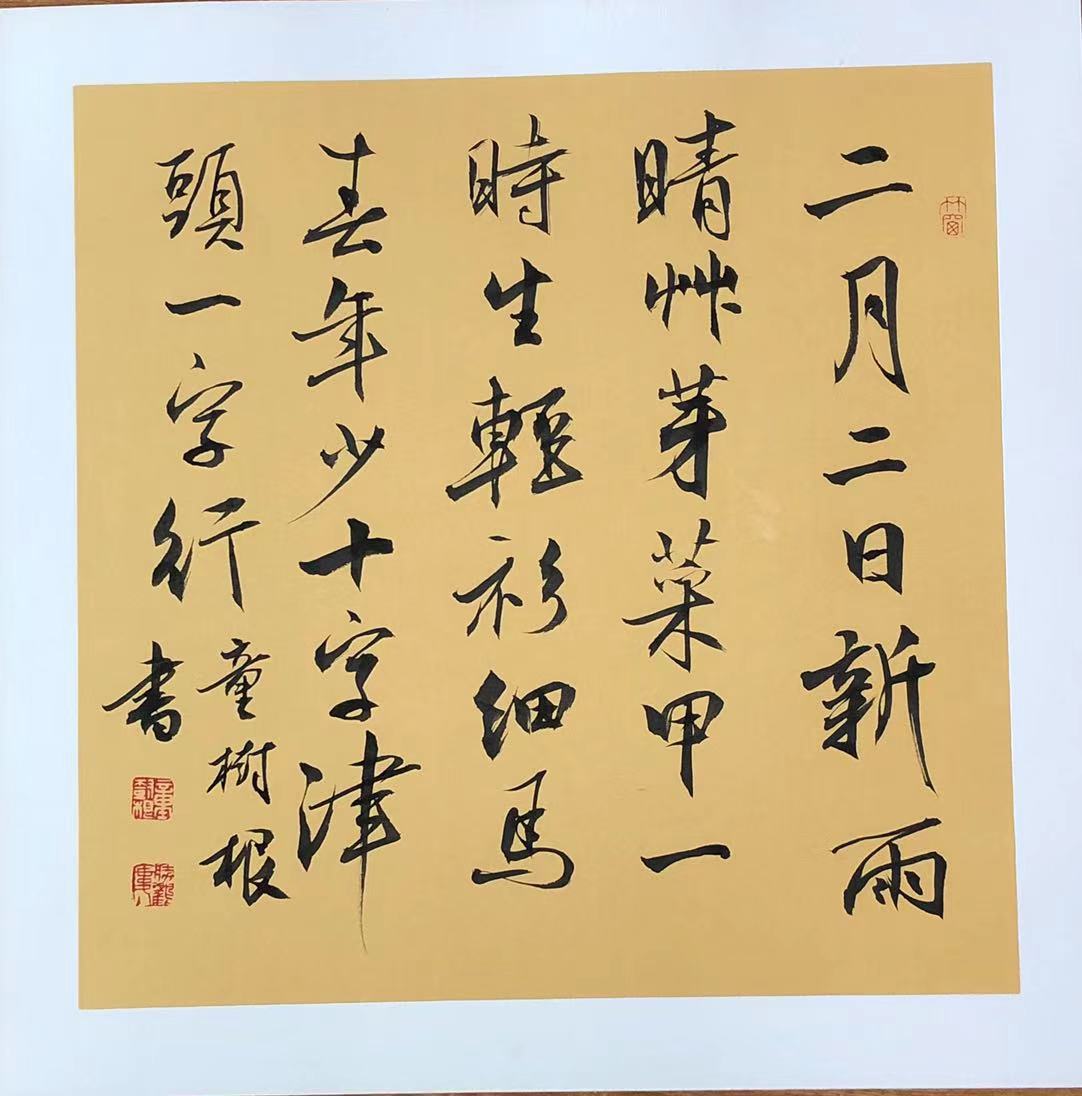 二月二日新雨
晴艸芽菜甲一
時生輕衫細馬
春年少十字津
頭一字行
童樹根
書